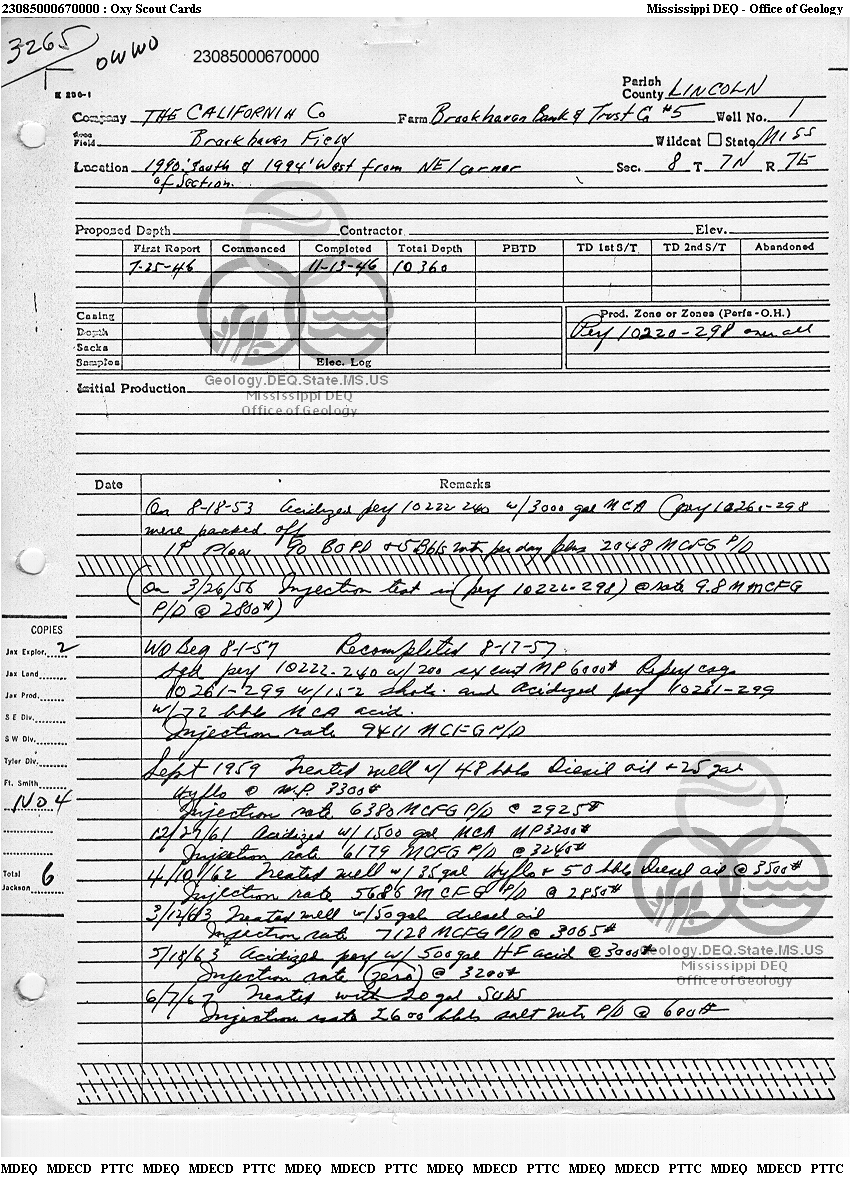 23085000670000 : Oxy Scout Cards Mississippi DEQ - Office of Geology
3265
OWWO
23085000670000
Parish
County LINCOLN
Company THE CALIFORNIA Co Farm Brookhaven Bank & Trust Co #5 Well No. 1
Area
Field Brookhaven Field Wildcat State MISS
Location 1990' South & 1994' West from NE/corner Sec. 8 T 7N R 7E
of Section.
Proposed Depth Contractor Elev.
First Report Commenced Completed Total Depth PBTD TD 1st S/T TD 2nd S/T Abandoned
7-25-46 11-13-46 10360
Casing Prod. Zone or Zones (Perfs - O.H.)
Depth Perf 10220-298 overall
Sacks
Samples Elec. Log
Geology.DEQ.State.MS.US
Initial Production
Mississippi DEQ
Office of Geology
Date Remarks
On 8-18-53 Acidized perf 10222-240 w/3000 gal MCA (perf 10261-298
were packed off
IP Flow 90 BOPD + 5 Bbls wtr per day plus 2048 MCFG P/D
(On 3/26/56 Injection test in (perf 10222-298) @ rate 9.8 MMCFG
P/D @ 2800#)
COPIES
Jax Explor. 2 WO Beg 8-1-57 Recompleted 8-17-57.
Jax Land Sqd perf 10222-240 w/200 sx cmt MP 6000# Reperf csg
Jax Prod. 10261-299 w/152 shots and Acidized perf 10261-299
S E Div. w/72 bbls MCA acid.
S W Div. Injection rate 9411 MCFG P/D
Tyler Div. Sept 1959 Treated well w/ 48 bbls Diesel oil + 25 gal
Ft. Smith Hyflo @ M.P. 3300#
NO 4 Injection rate 6380 MCFG P/D @ 2925#
12/27/61 Acidized w/1500 gal MCA MP 3200#
Injection rate 6179 MCFG P/D @ 3240#
Total 6 4/10/62 Treated well w/35 gal Hyflo + 50 bbls Diesel oil @ 3500#
Jackson Injection rate 5686 MCFG P/D @ 2850#
3/12/63 Treated well w/50 gal diesel oil
Injection rate 7128 MCFG P/D @ 3065#
5/18/63 Acidized perf w/500 gal HF acid @ 3000#
Geology.DEQ.State.MS.US
Injection rate (zero) @ 3200#
Mississippi DEQ
Office of Geology
6/7/67 Treated with 20 gal
Injection rate 2600 bbls salt wtr P/D @ 600#
MDEQ MDECD PTTC MDEQ MDECD PTTC MDEQ MDECD PTTC MDEQ MDECD PTTC MDEQ MDECD PTTC MDEQ MDECD PTTC